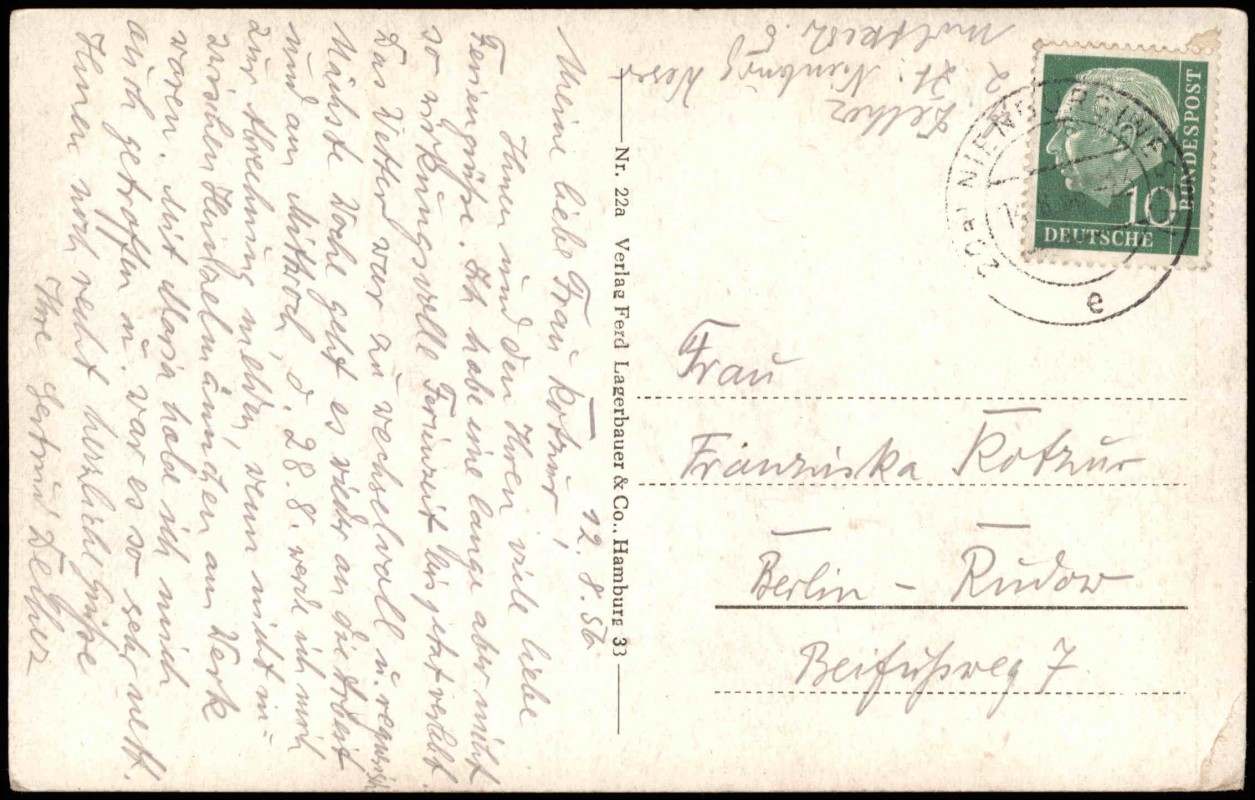 12. 8. 56
Meine liebe Frau Kotzur,
Ihnen und den Ihren viele liebe
Feriengrüße. Ich habe eine lange aber nicht
so wirkungsvolle Ferienzeit bis jetzt verlebt.
Das Wetter war zu wechselvoll u. regnerisch
Nächste Woche geht es wieder an die Arbeit
und am Mittwoch d. 28. 8. werde ich mich
zur Abrechnung melden, wenn nicht in-
zwischen Heinzelmännchen am Werk
waren. Mit Maria habe ich mich
auch getroffen u. war es so sehr nett.
Ihnen noch recht herzliche Grüße
Ihre Gertrud Zelher
Nr. 22a Verlag Ferd Lagerbauer & Co., Hamburg 33
Zelher
z. Zt. Nienburg Weser
BUNDESPOST
10
DEUTSCHE
NIENBURG
e
Frau
Franziska Kotzur
Berlin - Rudow
Beifußweg 7